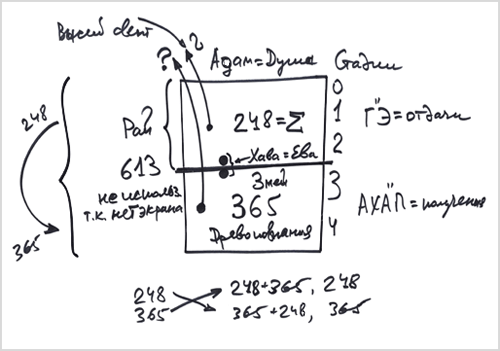 Высший свет
?
?
Адам=Душа
Стадии
0
1
2
3
4
ГЭ=отдачи
248
365
Рай
613
не использ.
т.к. нет экрана
248=Σ
Хава=Ева
Змей
365
Древо познания
АХАП=получения
248
365
248+365, 248
365+248, 365